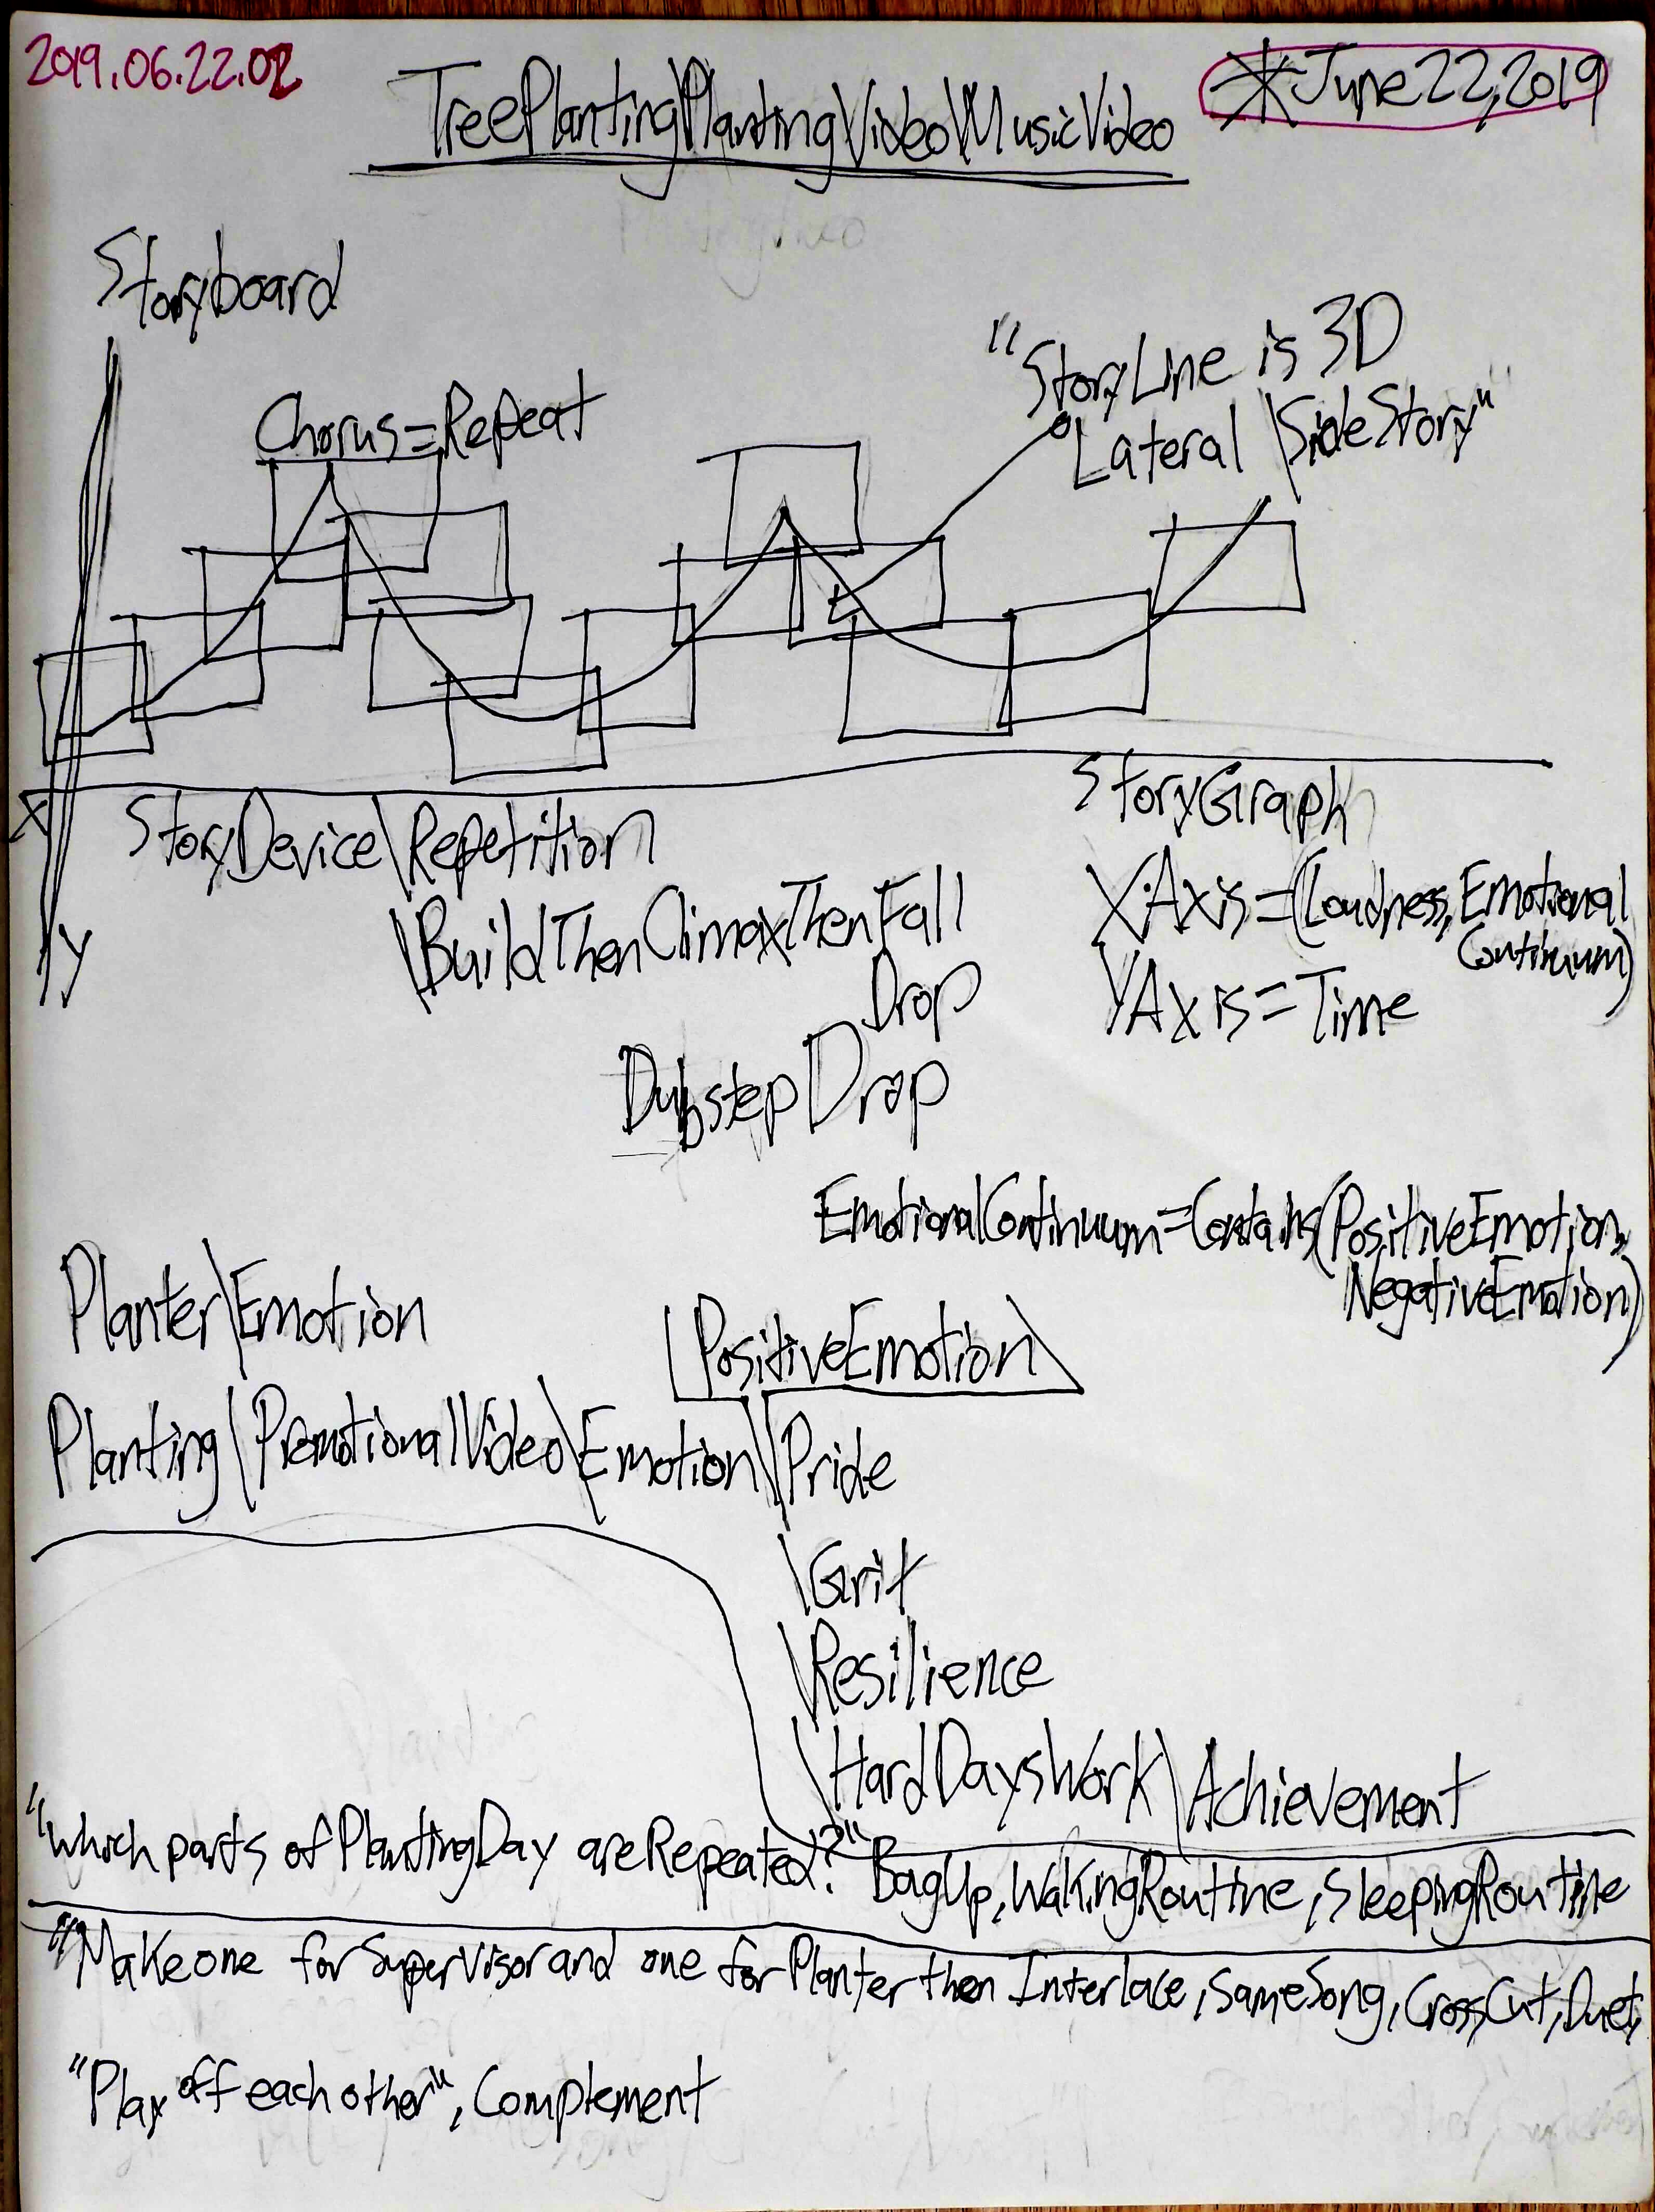 2019.06.22.02
*June22,2019
TreePlantingPlantingVideo\MusicVideo
Storyboard
"StoryLine is 3D
Lateral\SideStory"
Chorus=Repeat
X
Y
StoryDevice\Repetition
\BuildThenClimaxThenFall
Drop
DubstepDrop
StoryGraph
XAxis=(Loudness,Emotional
Continuum)
YAxis=Time
EmotionalContinuum=Contains(PositiveEmotion,
NegativeEmotion)
Planter\Emotion
\PositiveEmotion\
Planting\PromotionalVideo\Emotion\Pride
\Grit
\Resilience
\HardDaysWork\Achievement
"Which parts of PlantingDay areRepeated?" BagUp,WakingRoutine,SleepingRoutine
"Makeone forSupervisorand one forPlanterthen Interlace,SameSong,CrossCut,Duet,
"Play off each other",Complement